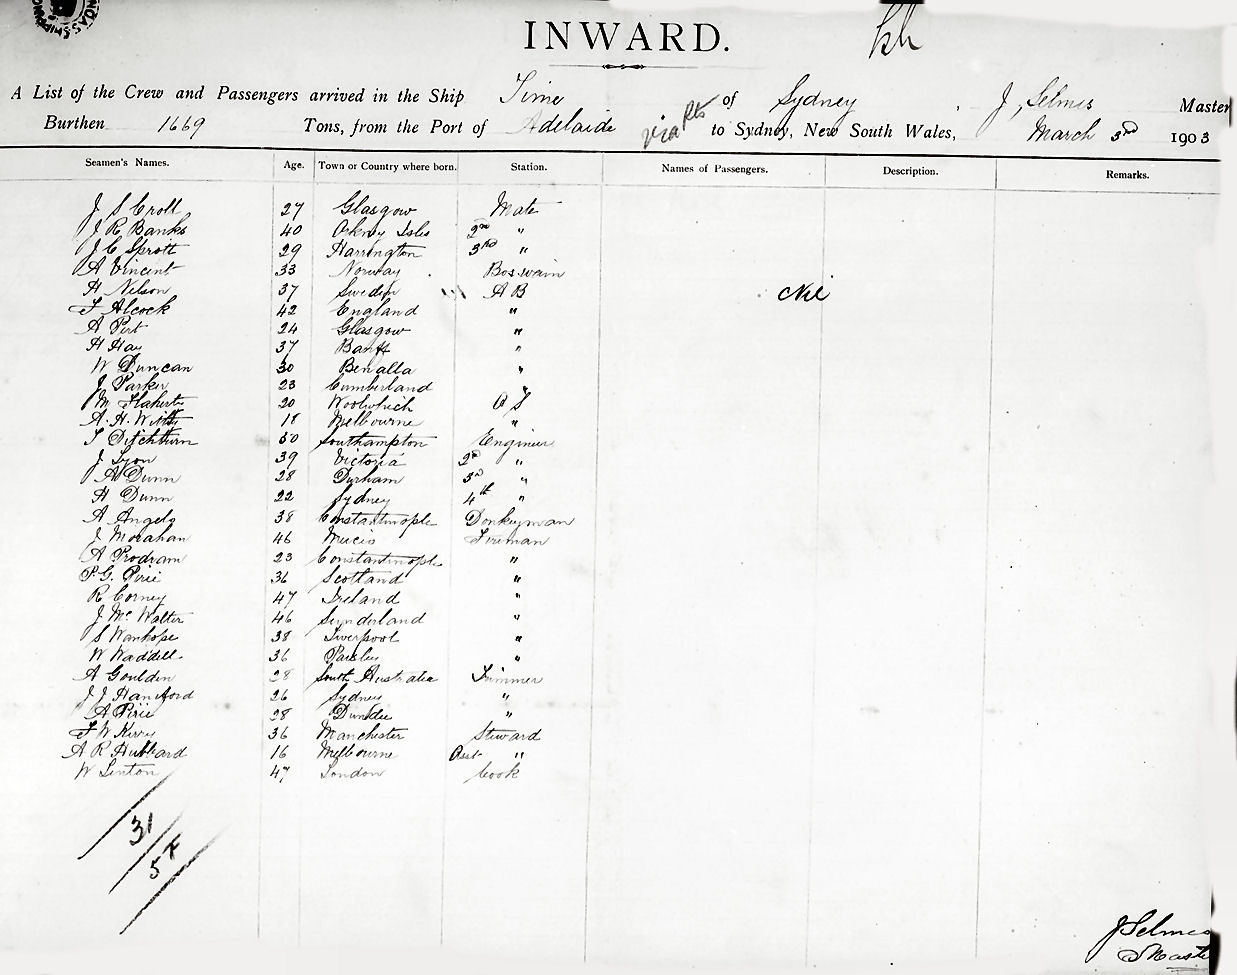 INWARD.
A List of the Crew and Passengers arrived in the Ship Time of Sydney, J. Selmes Master
Burthen 1669 Tons, from the Port of Adelaide via Pts to Sydney, New South Wales, March 3rd 1903
Seamen's Names. Age. Town or Country where born. Station. Names of Passengers. Description. Remarks.
J S Croll 27 Glasgow Mate
J R Banks 40 Orkney Isles 2nd "
J C Sprott 29 Harrington 3rd "
A Vincent 33 Norway Boswain
H Nelson 37 Sweden A B Nil
F Alcock 42 England "
A Port 24 Glasgow "
H Hay 37 Banff "
W Duncan 30 Benalla "
J Parker 23 Cumberland "
M Flaherty 20 Woolwhich O S
A. H. Witts 18 Melbourne "
T Ditchburn 50 Southampton Engineer
J Lyon 39 Victoria 2nd "
A Dunn 28 Durham 3rd "
H Dunn 22 Sydney 4th "
A Angelo 38 Constantinople Donkeyman
J Morahan 46 Fireman
A Prodram 23 Constantinople "
P. G. Pirie 36 Scotland "
R Corney 47 Ireland "
J McWalter 46 Sunderland "
S Wanhope 38 Liverpool "
W Waddell 36 Paisley "
A Goulden 28 South Australia Trimmer
J J Haniford 26 Sydney "
A Pirie 28 Dundee "
F W Kirry 36 Manchester Steward
A R Hubbard 16 Melbourne Asst "
W Linton 47 London Cook
31
J Selmes
Master